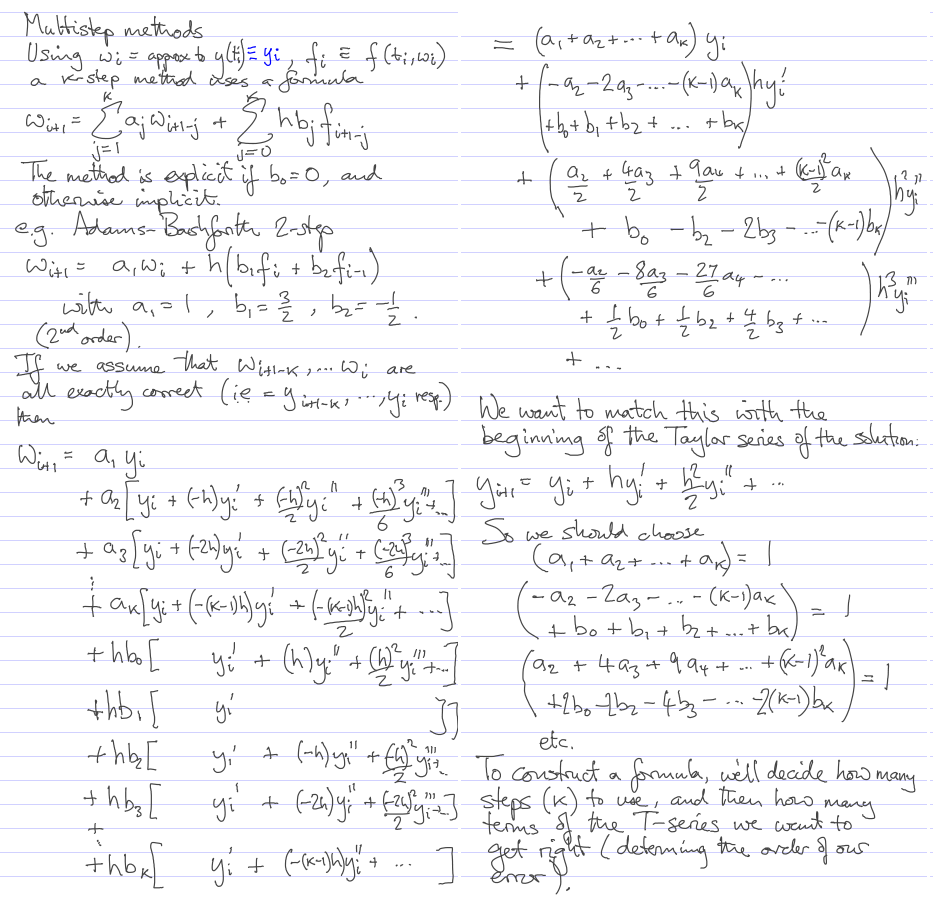 Multistep methods
Using ωᵢ = approx to y(tᵢ) ≡ yᵢ, fᵢ ≡ f(tᵢ, ωᵢ)
a k-step method uses a formula
ωᵢ₊₁ = Σ_{j=1}^{k} aⱼ ωᵢ₊₁₋ⱼ + Σ_{j=0}^{k} h bⱼ fᵢ₊₁₋ⱼ
The method is explicit if b₀=0, and
otherwise implicit.
e.g. Adams-Bashforth 2-step
ωᵢ₊₁ = a₁ωᵢ + h(b₁fᵢ + b₂fᵢ₋₁)
with a₁=1, b₁=3/2, b₂=-1/2.
(2nd order).
If we assume that ωᵢ₊₁₋ₖ, ... ωᵢ are
all exactly correct (ie = yᵢ₊₁₋ₖ, ..., yᵢ resp.)
then
ωᵢ₊₁ = a₁ yᵢ
+ a₂[yᵢ + (-h)yᵢ' + (-h)²/2 yᵢ'' + (-h)³/6 yᵢ''' + ...]
+ a₃[yᵢ + (-2h)yᵢ' + (-2h)²/2 yᵢ'' + (-2h)³/6 yᵢ''' + ...]
⋮
+ aₖ[yᵢ + (-(k-1)h)yᵢ' + (-(k-1)h)²/2 yᵢ'' + ...]
+ hb₀[ yᵢ' + (h)yᵢ'' + (h)²/2 yᵢ''' + ...]
+ hb₁[ yᵢ' ]]
+ hb₂[ yᵢ' + (-h)yᵢ'' + (-h)²/2 yᵢ''' + ...
+ hb₃[ yᵢ' + (-2h)yᵢ'' + (-2h)²/2 yᵢ''' + ...]
+
⋮
+ hbₖ[ yᵢ' + (-(k-1)h)yᵢ'' + ... ]
= (a₁ + a₂ + ... + aₖ) yᵢ
+ (-a₂ - 2a₃ - ... - (k-1)aₖ
+ b₀ + b₁ + b₂ + ... + bₖ) hyᵢ'
+ (a₂/2 + 4a₃/2 + 9a₄/2 + ... + (k-1)²/2 aₖ
+ b₀ - b₂ - 2b₃ - ... - (k-1)bₖ) h²yᵢ''
+ (-a₂/6 - 8a₃/6 - 27/6 a₄ - ...
+ 1/2 b₀ + 1/2 b₂ + 4/2 b₃ + ...) h³yᵢ'''
+ ...
We want to match this with the
beginning of the Taylor series of the solution.
yᵢ₊₁ = yᵢ + hyᵢ' + h²/2 yᵢ'' + ...
So we should choose
(a₁ + a₂ + ... + aₖ) = 1
(-a₂ - 2a₃ - ... - (k-1)aₖ
+ b₀ + b₁ + b₂ + ... + bₖ) = 1
(a₂ + 4a₃ + 9a₄ + ... + (k-1)²aₖ
+2b₀ -2b₂ - 4b₃ - ... -2(k-1)bₖ) = 1
etc.
To construct a formula, we'll decide how many
steps (k) to use, and then how many
terms of the T-series we want to
get right (determing the order of our
error).